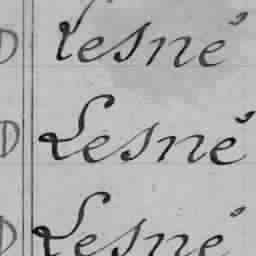 D Lesné
D Lesné
D Lesné